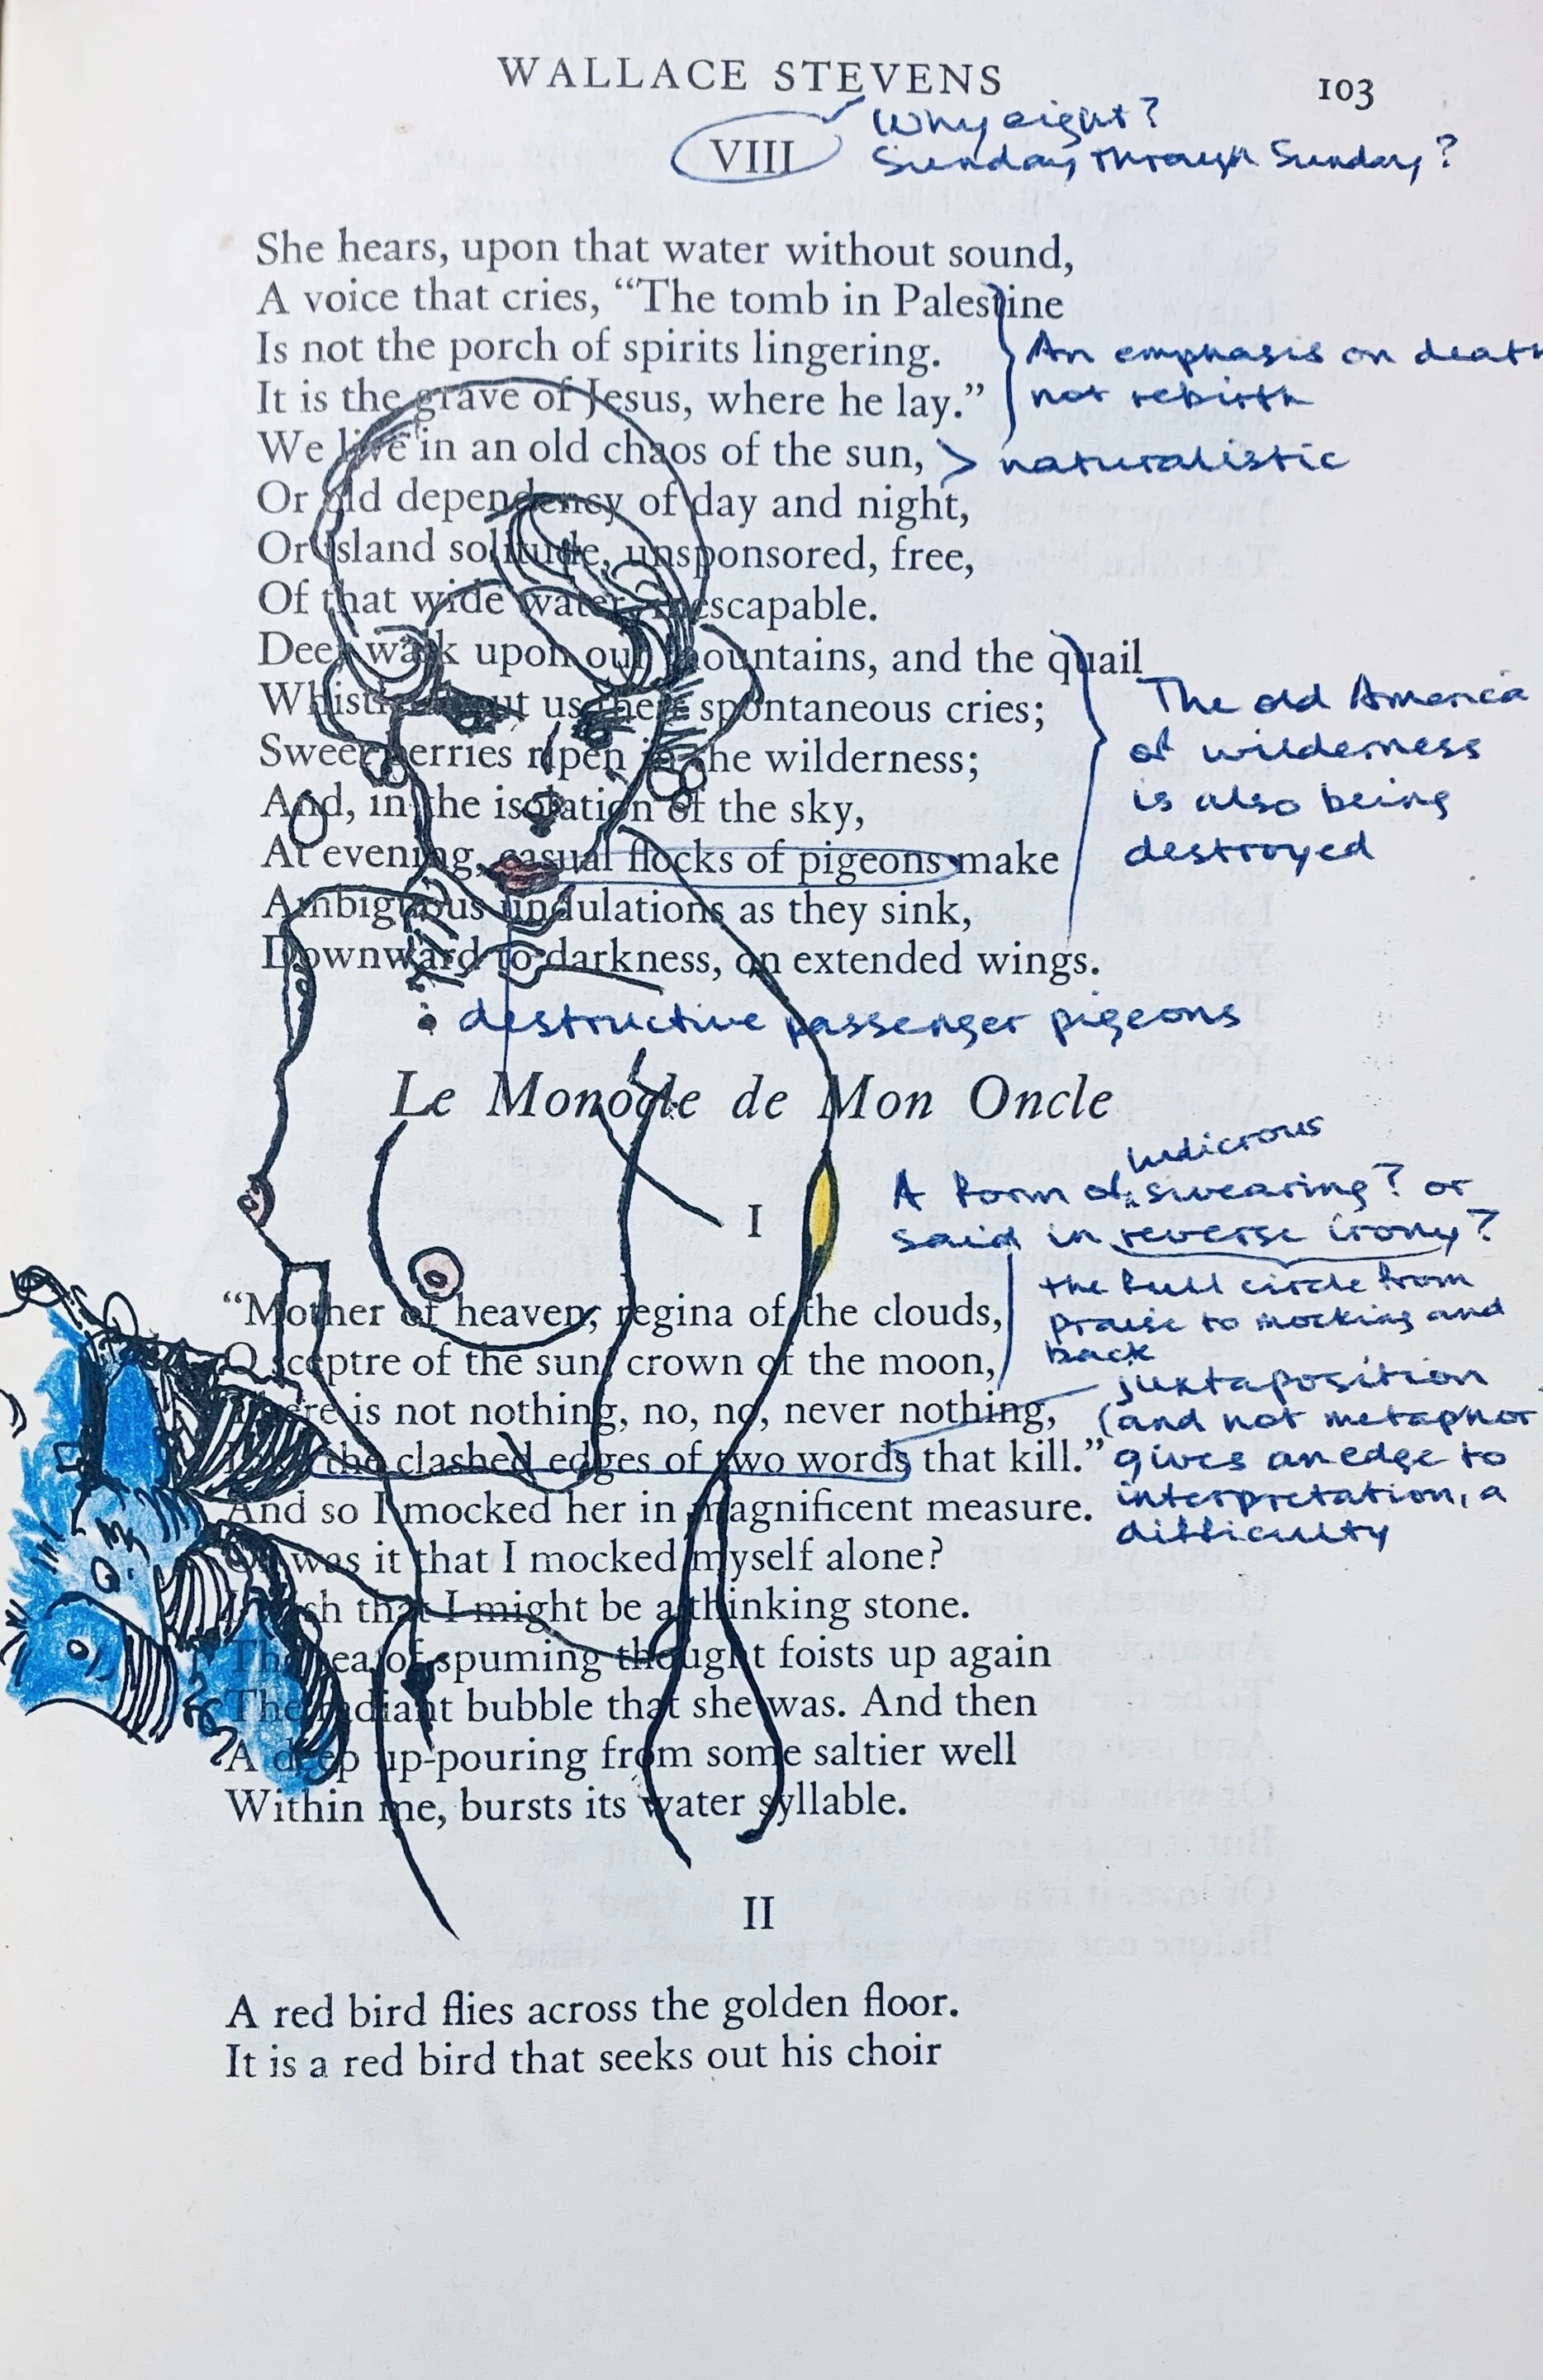 WALLACE STEVENS 103
VIII
Why eight?
Sunday through Sunday?
She hears, upon that water without sound,
A voice that cries, “The tomb in Palestine
Is not the porch of spirits lingering.
It is the grave of Jesus, where he lay.”
An emphasis on death
not rebirth
We live in an old chaos of the sun,
> naturalistic
Or old dependency of day and night,
Or island solitude, unsponsored, free,
Of that wide water, inescapable.
Deer walk upon our mountains, and the quail
Whistle about us their spontaneous cries;
Sweet berries ripen in the wilderness;
And, in the isolation of the sky,
At evening, casual flocks of pigeons make
Ambiguous undulations as they sink,
Downward to darkness, on extended wings.
The old America
of wilderness
is also being
destroyed
destructive passenger pigeons
Le Monocle de Mon Oncle
I
ludicrous
A form of swearing? or
said in reverse irony?
the full circle from
praise to mocking and
back
“Mother of heaven, regina of the clouds,
O sceptre of the sun, crown of the moon,
There is not nothing, no, no, never nothing,
Like the clashed edges of two words that kill.”
juxtaposition
(and not metaphor
gives an edge to
interpretation, a
difficulty
And so I mocked her in magnificent measure.
Or was it that I mocked myself alone?
I wish that I might be a thinking stone.
The sea of spuming thought foists up again
The radiant bubble that she was. And then
A deep up-pouring from some saltier well
Within me, bursts its water syllable.
II
A red bird flies across the golden floor.
It is a red bird that seeks out his choir